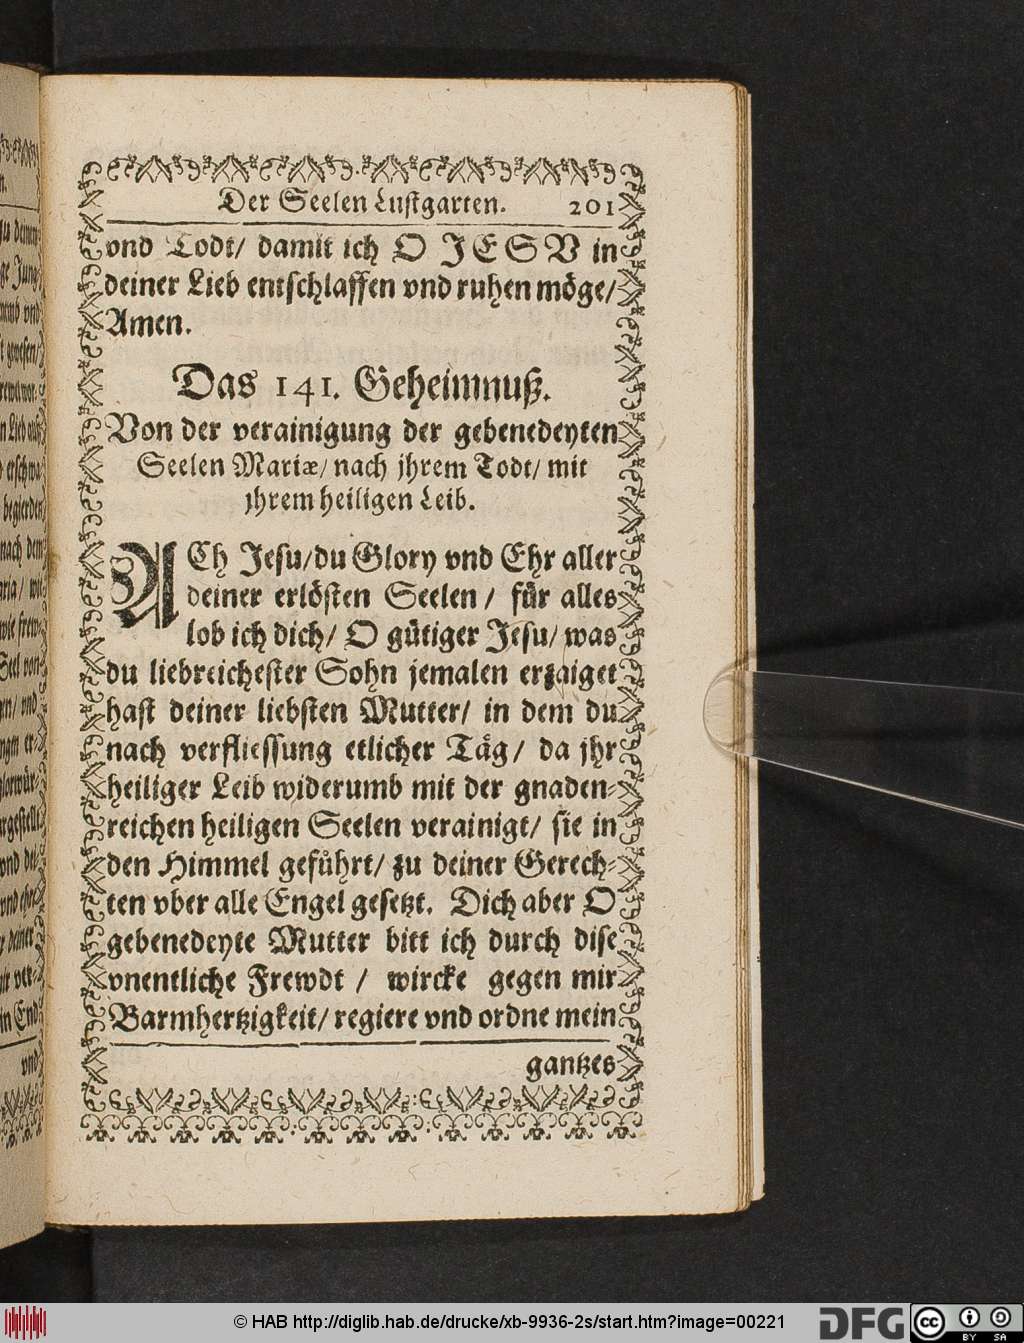 Der Seelen Lustgarten. 201
vnd Todt/ damit ich O JESV in
deiner Lieb entschlaffen vnd ruhen möge/
Amen.
Das 141. Geheimnuß.
Von der verainigung der gebenedeyten
Seelen Mariæ/ nach jhrem Todt/ mit
jhrem heiligen Leib.
ACh Jesu/ du Glory vnd Ehr aller
deiner erlösten Seelen / für alles
lob ich dich/ O gütiger Jesu/ was
du liebreichester Sohn jemalen erzaiget
hast deiner liebsten Mutter/ in dem du
nach verfliessung etlicher Täg/ da jhr
heiliger Leib widerumb mit der gnaden-
reichen heiligen Seelen verainigt/ sie in
den Himmel geführt/ zu deiner Gerech-
ten vber alle Engel gesetzt. Dich aber O
gebenedeyte Mutter bitt ich durch dise
vnentliche Frewdt / wircke gegen mir
Barmhertzigkeit/ regiere vnd ordne mein
gantzes
© HAB http://diglib.hab.de/drucke/xb-9936-2s/start.htm?image=00221
DFG
cc BY SA